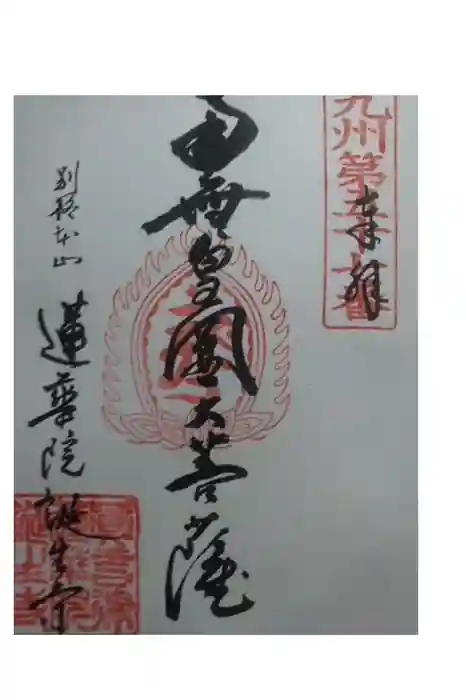 九州第五十七番
奉拝
南無皇圓大菩薩
別格本山
蓮華院誕生寺